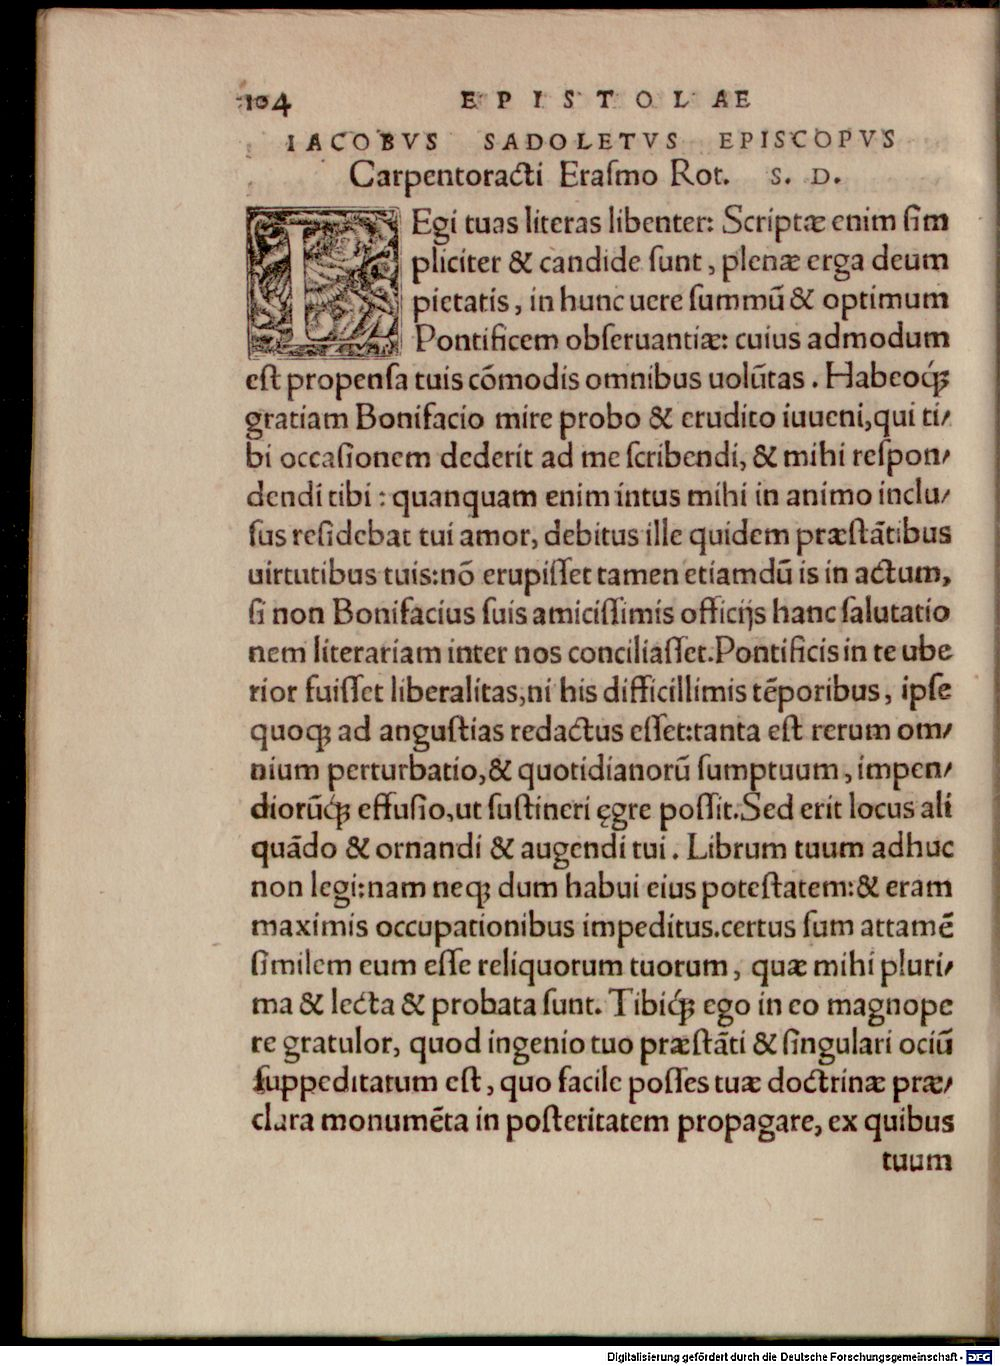 104 EPISTOLAE
IACOBVS SADOLETVS EPISCOPVS
Carpentoracti Eraſmo Rot. S. D.
LEgi tuas literas libenter: Scriptæ enim ſim
pliciter & candide ſunt, plenæ erga deum
pietatis, in hunc uere ſummũ & optimum
Pontificem obſeruantiæ: cuius admodum
eſt propenſa tuis cõmodis omnibus uolũtas. Habeoq́ꝫ
gratiam Bonifacio mire probo & erudito iuueni, qui ti/
bi occaſionem dederit ad me ſcribendi, & mihi reſpon/
dendi tibi: quanquam enim intus mihi in animo inclu/
ſus reſidebat tui amor, debitus ille quidem præſtãtibus
uirtutibus tuis: nõ erupiſſet tamen etiamdũ is in actum,
ſi non Bonifacius ſuis amiciſſimis officijs hanc ſalutatio
nem literariam inter nos conciliaſſet. Pontificis in te ube
rior fuiſſet liberalitas, ni his difficillimis tẽporibus, ipſe
quoqꝫ ad anguſtias redactus eſſet: tanta eſt rerum om/
nium perturbatio, & quotidianorũ ſumptuum, impen/
diorũq́ꝫ effuſio, ut ſuſtineri ęgre poſſit. Sed erit locus ali
quãdo & ornandi & augendi tui. Librum tuum adhuc
non legi: nam neqꝫ dum habui eius poteſtatem: & eram
maximis occupationibus impeditus. certus ſum attamẽ
ſimilem eum eſſe reliquorum tuorum, quæ mihi pluri/
ma & lecta & probata ſunt. Tibiq́ꝫ ego in eo magnope
re gratulor, quod ingenio tuo præſtãti & ſingulari ociũ
ſuppeditatum eſt, quo facile poſſes tuæ doctrinæ præ/
clara monumẽta in poſteritatem propagare, ex quibus
tuum
Digitalisierung gefördert durch die Deutsche Forschungsgemeinschaft - DFG